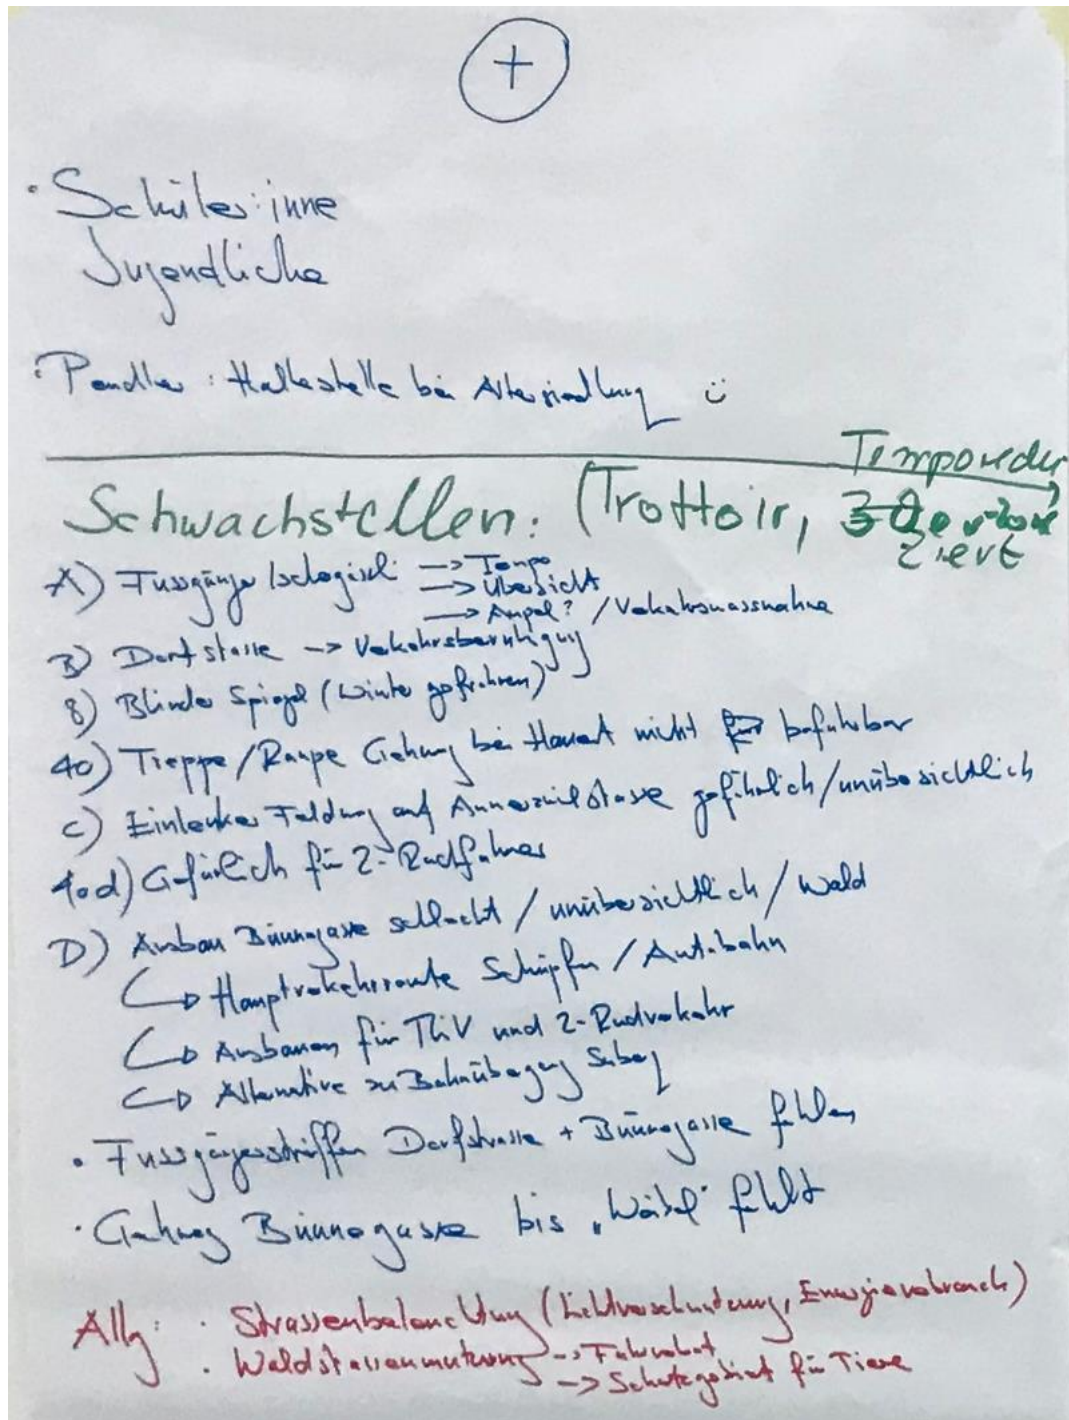 +
· Schüler:inne
Jugendliche
· Pendler : Haltestelle bei Altersiedlung
Temporedu
Schwachstellen: (Trottoir, ziert
A) Fussgänger → Tempo
→ Übersicht
→ Ampel? / Verkehrsmassnahme
B) Dorfstrasse → Verkehrsberuhigung
8) Blinder Spiegel (Winter gefrohren)
40) Treppe/Rampe Gehweg bei nicht befahrbar
C) Einlenker Feldweg auf gefährlich/unübersichtlich
40d) Gefärlich für 2-Radfahrer
D) Ausbau Bünnegasse schlecht / unübersichtlich / Wald
↳ Hauptverkehrsroute Schüpfen / Autobahn
↳ Ausbauen für und 2-Radverkehr
↳ Alternative zu Bahnübergang
· Fussgängerstreiffen Dorfstrasse + Bünnegasse fehlen
· Gehweg Bünnegasse bis „Weibel" fehlt
Allg: · Strassenbeleuchtung (Lichtverschmutzung, Energieverbrauch)
· Waldstrassennutzung → Fahrverbot
→ Schutzgebiet für Tiere